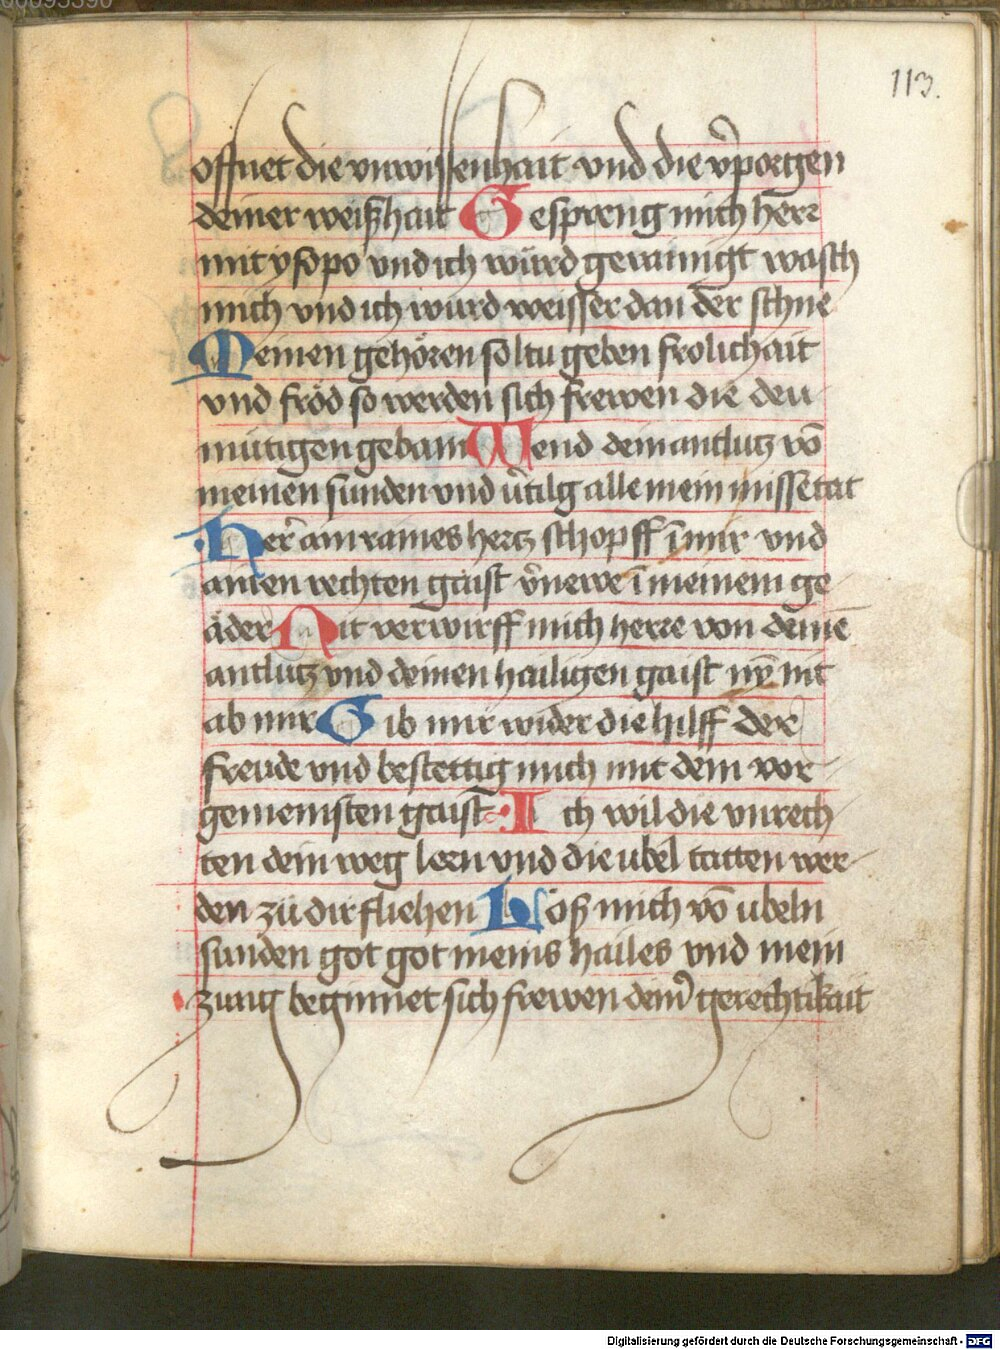 00095390
113.
offnet die vnwissenhait vnd die v̉porgen
deiner weißhait Gesprẽng mich herr
mit ysopo vnd ich würd gerainigt wasch
mich vnd ich würd weisser dan der schne
Meinen gehören soltu geben frolichait
vnd fröd so werden sich frewen die deu
mütigen gebain Wend dein antlutz võ
meinen sunden vnd v̉tilg alle mein missetat
Her̉ ain raines hertz schöpff ĩ mir vnd
ainen rechten gaist v̉newe ĩ meinem ge
äder Nit verwirff mich herre von deinẽ
antlutz vnd deinen hailigen gaist nỹ nit
ab mir Gib mir wider die hilff der
freude vnd bestettig mich mit dem vor
gemenisten gaist Ich wil die vnrech
ten dein weg leen vnd die übel tatten wer
den zü dir fliehen Löß mich võ übeln
sunden got got meins hailes vnd mein
zung beginnet sich frewen dein̉ gerechtikait
Digitalisierung gefördert durch die Deutsche Forschungsgemeinschaft - DFG